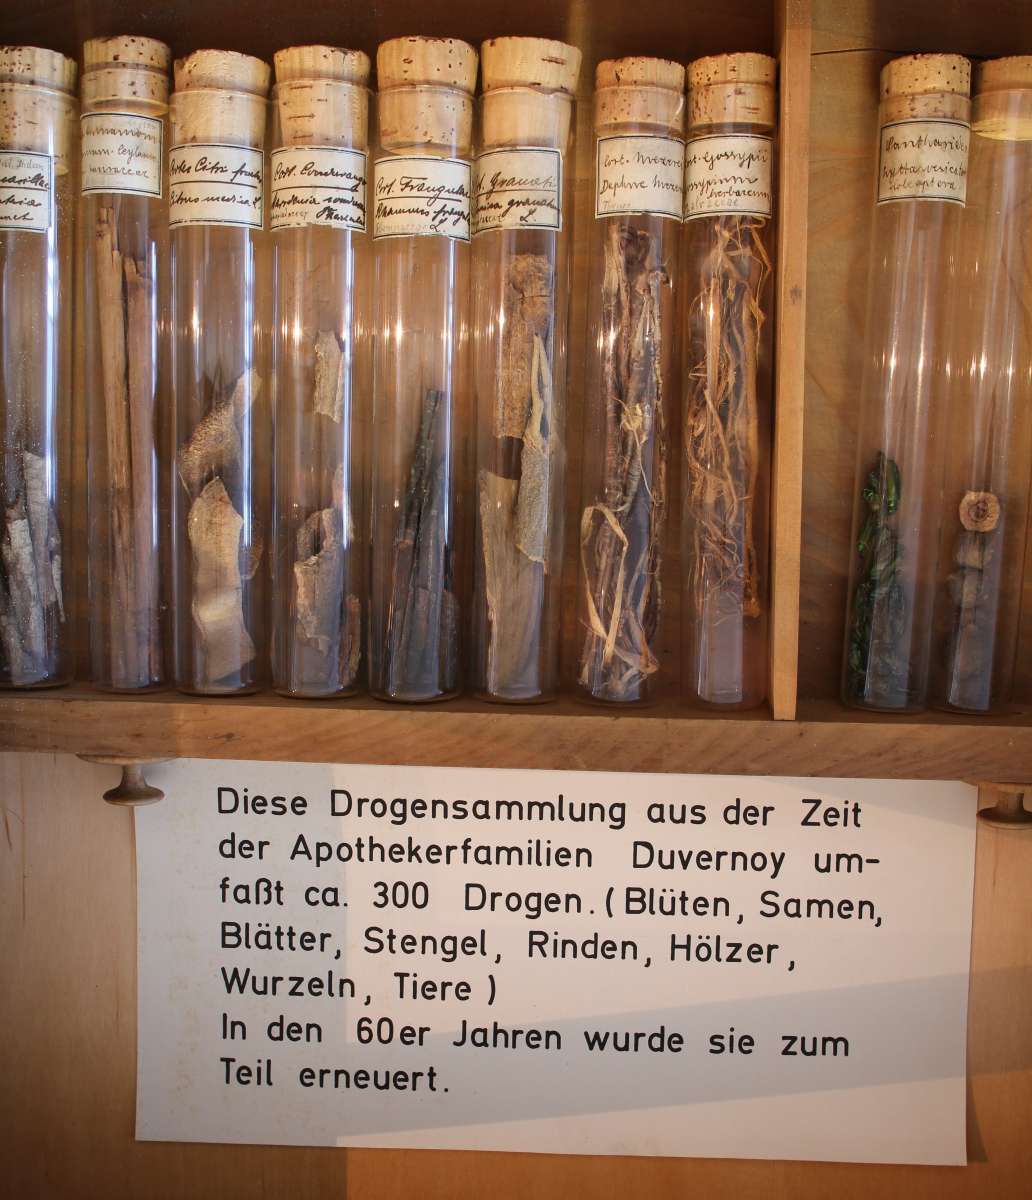 Cinnamom
Ceylan
Cortex Citri fruct
Citrus medica L.
Cort. Condurango
Cort. Frangulae
Rhamnus frangula
L.
Cort. Granati
Punica granatum
L.
Cort. Mezerei
Daphne Mezereum
Cort. Gossypii
Gossypium
herbaceum
Cantharides
Lytta vesicatoria
Coleoptera
Diese Drogensammlung aus der Zeit
der Apothekerfamilien Duvernoy um-
faßt ca. 300 Drogen. (Blüten, Samen,
Blätter, Stengel, Rinden, Hölzer,
Wurzeln, Tiere )
In den 60er Jahren wurde sie zum
Teil erneuert.